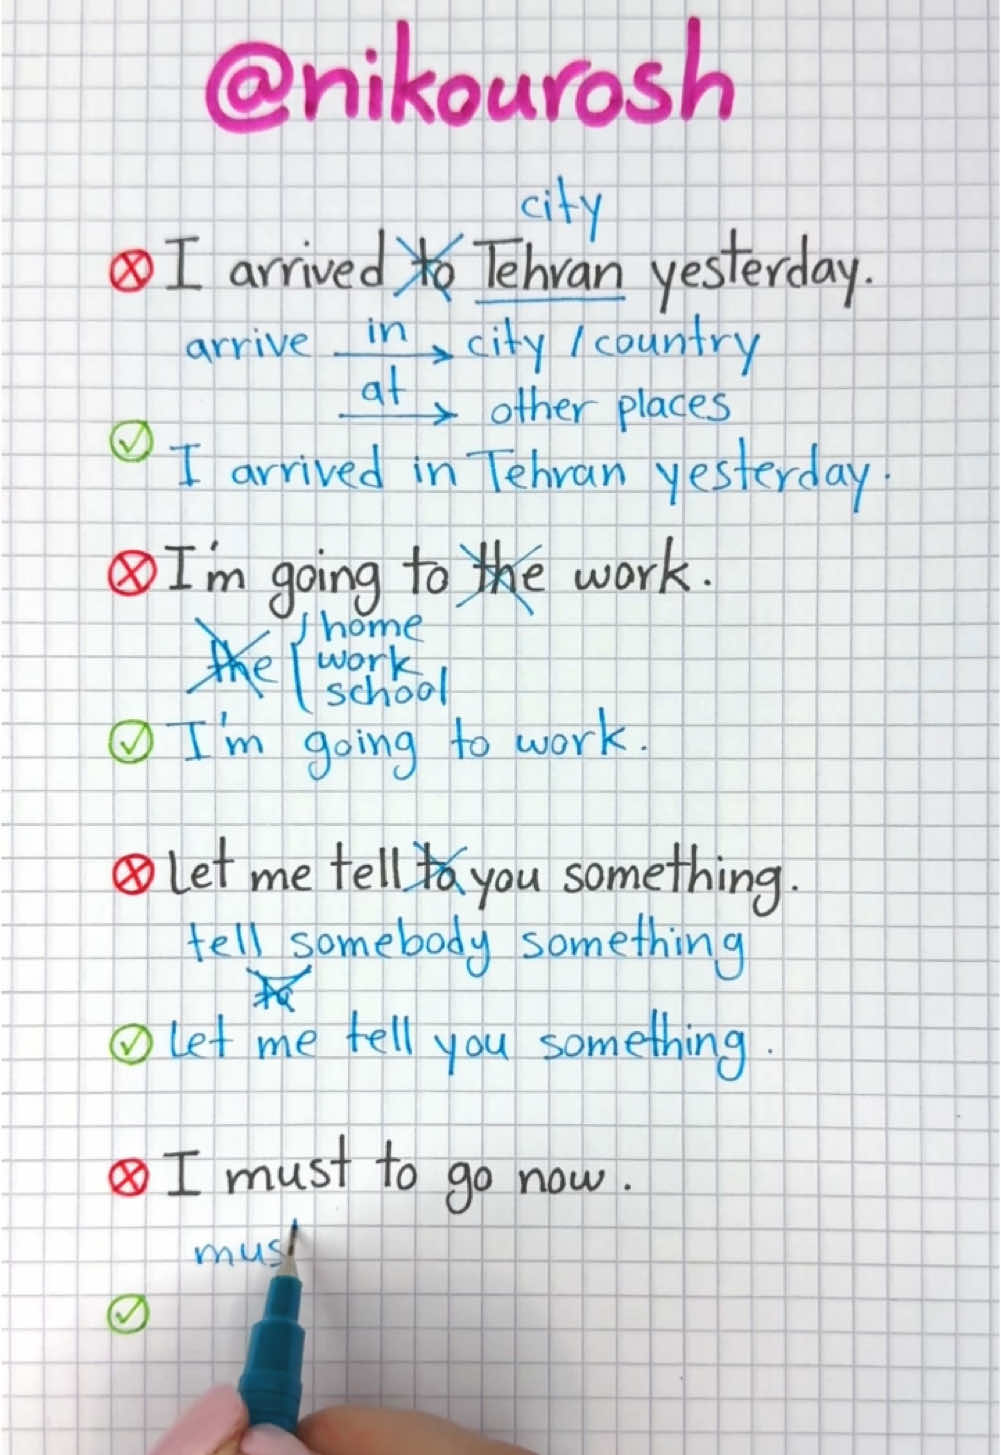 @nikourosh
city
I arrived to Tehran yesterday.
arrive in city / country
at other places
I arrived in Tehran yesterday.
I'm going to the work.
home
the work
school
I'm going to work.
Let me tell to you something.
tell somebody something
to
Let me tell you something.
I must to go now.
mus